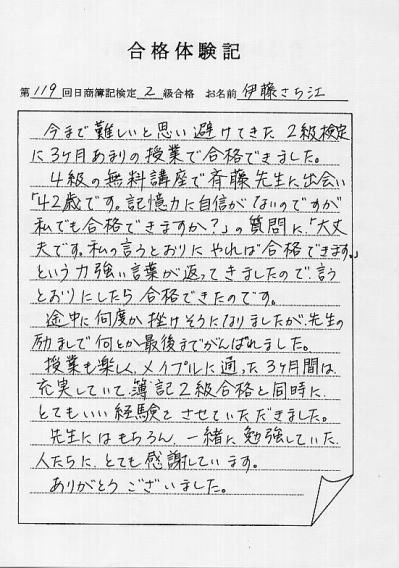 合格体験記
第119回日商簿記検定2級合格 お名前 伊藤さち江
今まで難しいと思い避けてきた 2級検定
に3ヶ月あまりの授業で合格できました。
4級の無料講座で斉藤先生に出会い
「42歳です。記憶力に自信がないのですが
私でも合格できますか?」の質問に、「大丈
夫です。私の言うとおりにやれば合格できます。」
という力強い言葉が返ってきましたので、言う
とおりにしたら合格できたのです。
途中に何度か挫けそうになりましたが、先生の
励ましで何とか最後までがんばれました。
授業も楽しく、メイプルに通った3ヶ月間は
充実していて、簿記2級合格と同時に、
とてもいい経験とさせていただきました。
先生にはもちろん、一緒に勉強していた
人たちに、とても感謝しています。
ありがとうございました。